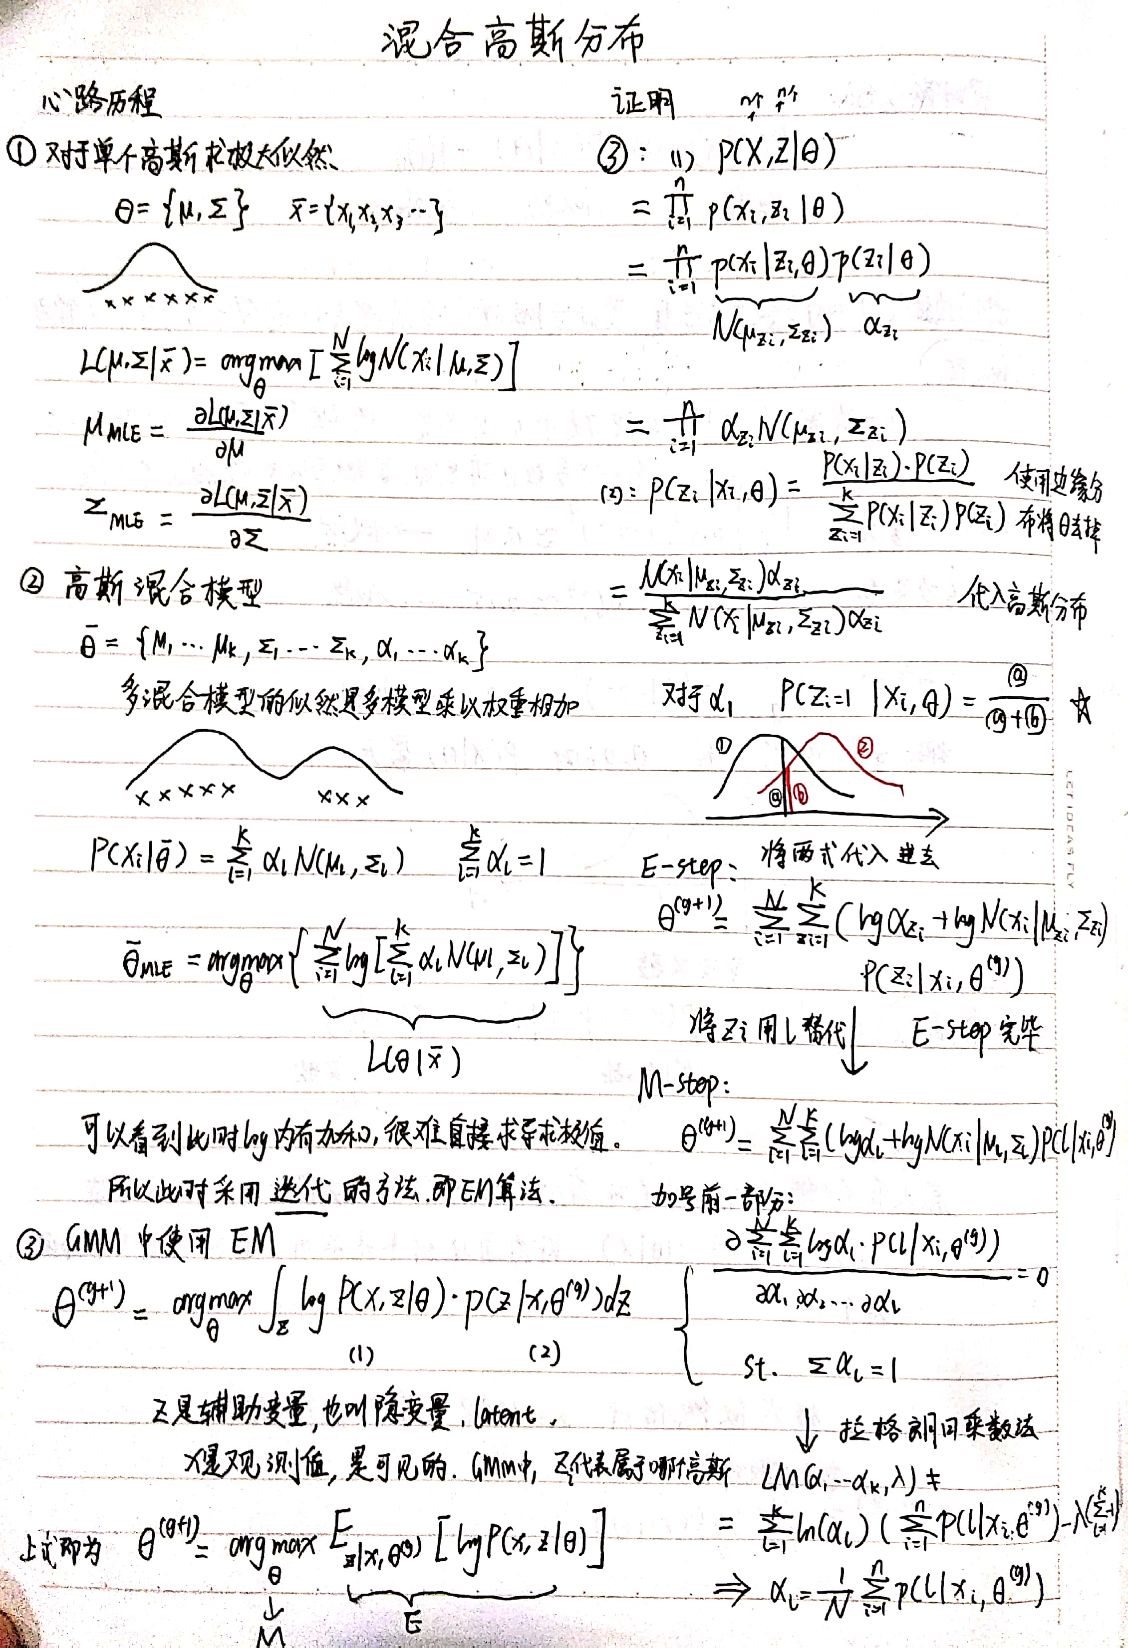 混合高斯分布
心路历程
① 对于单个高斯求极大似然
θ = {μ, Σ}  x̄ = {x₁, x₂, x₃ …}
× × × × × ×
L(μ,Σ|x̄) = argmax_θ [ Σ_{i=1}^{N} log N(xᵢ | μ, Σ) ]
μ_MLE = ∂L(μ,Σ|x̄) / ∂μ
Σ_MLE = ∂L(μ,Σ|x̄) / ∂Σ
② 高斯混合模型
θ̄ = {μ₁ … μₖ, Σ₁ … Σₖ, α₁ … αₖ}
多混合模型的似然是多模型乘以权重相加
× × × × ×  × × ×
P(xᵢ|θ̄) = Σ_{l=1}^{k} α_l N(μ_l, Σ_l)  Σ_{l=1}^{k} α_l = 1
θ̄_MLE = argmax_θ { Σ_{i=1}^{N} log [ Σ_{l=1}^{k} α_l N(μ_l, Σ_l) ] }
L(θ|x̄)
可以看到此时log内有加和,很难直接求导求极值。
所以此时采用 迭代 的方法.即EM算法.
③ GMM 中使用 EM
θ^(g+1) = argmax_θ ∫_z log P(x,z|θ) · p(z|x,θ^(g)) dz
(1)  (2)
Z是辅助变量,也叫隐变量. latent.
X是观测值,是可见的. GMM中, Zᵢ代表属于哪个高斯
上式即为 θ^(g+1) = argmax_θ E_{z|x,θ^(g)} [log P(x,z|θ)]
↓ M  E
证明
n个 n个
③: (1) P(X,Z|θ)
= ∏_{i=1}^{n} p(xᵢ, zᵢ | θ)
= ∏_{i=1}^{n} p(xᵢ | zᵢ, θ) p(zᵢ | θ)
N(μ_{zᵢ}, Σ_{zᵢ})  α_{zᵢ}
= ∏_{i=1}^{n} α_{zᵢ} N(μ_{zᵢ}, Σ_{zᵢ})
(2): P(zᵢ | xᵢ, θ) = P(xᵢ|zᵢ)·P(zᵢ) / Σ_{zᵢ=1}^{k} P(xᵢ|zᵢ) P(zᵢ)  使用边缘分
布将θ去掉
= N(xᵢ|μ_{zᵢ}, Σ_{zᵢ}) α_{zᵢ} / Σ_{zᵢ=1}^{k} N(xᵢ|μ_{zᵢ}, Σ_{zᵢ}) α_{zᵢ}  代入高斯分布
对于 α₁  P(zᵢ=1 | xᵢ, θ) = ⓐ / (ⓐ+ⓑ) ☆
① ② ⓐ ⓑ
E-step: 将两式代入进去
θ^(g+1) = Σ_{i=1}^{N} Σ_{zᵢ=1}^{k} (log α_{zᵢ} + log N(xᵢ|μ_{zᵢ}, Σ_{zᵢ})
P(zᵢ | xᵢ, θ^(g))
将 zᵢ 用 l 替代 ↓  E-step 完毕
M-step:
θ^(g+1) = Σ_{i=1}^{N} Σ_{l=1}^{k} (log α_l + log N(xᵢ | μ_l, Σ_l) P(l|xᵢ,θ^(g))
加号前一部分:
∂ Σ_{i=1}^{N} Σ_{l=1}^{k} log α_l · P(l|xᵢ, θ^(g)) / ∂α₁ ∂α₂ … ∂α_l = 0
st. Σ α_l = 1
↓ 拉格朗日乘数法
LM(α₁ … αₖ, λ) =
= Σ_{l=1}^{k} ln(α_l) ( Σ_{i=1}^{n} P(l|xᵢ,θ^(g)) − λ(Σ_{l=1}^{k}
⇒ α_l = 1/N Σ_{i=1}^{n} p(l | xᵢ, θ^(g))
LET IDEAS FLY